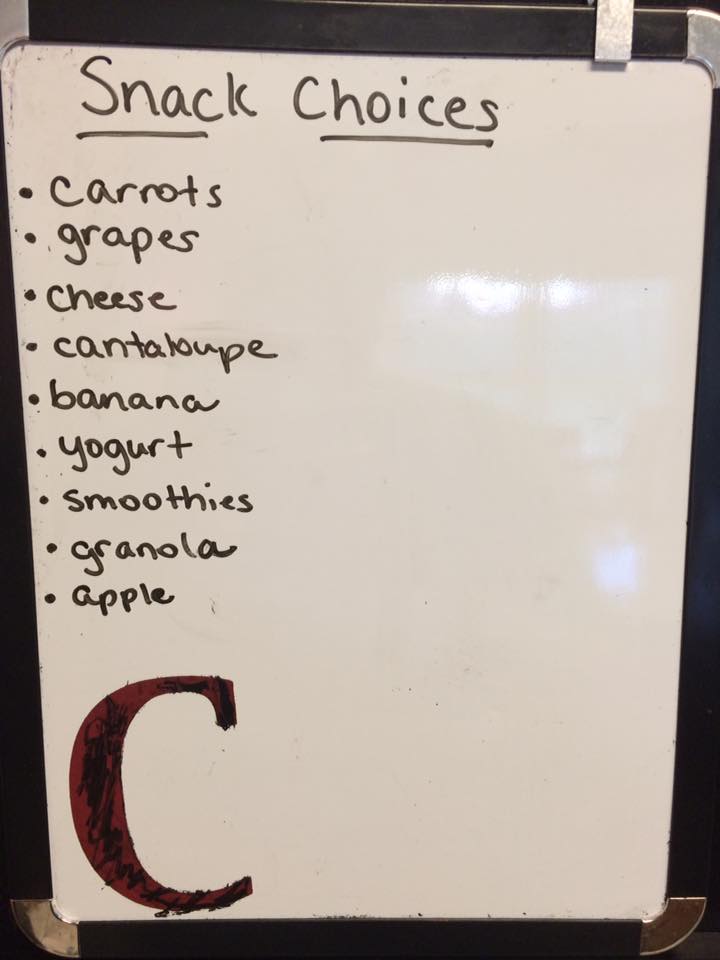 Snack Choices
• Carrots
• grapes
• cheese
• cantaloupe
• banana
• yogurt
• smoothies
• granola
• apple
C